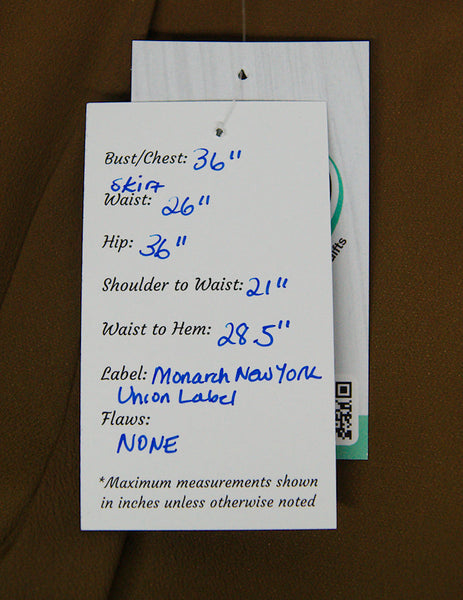 Bust/Chest: 36"
Skirt
Waist: 26"
Hip: 36"
Shoulder to Waist: 21"
Waist to Hem: 28.5"
Label: Monarch New York
Union Label
Flaws:
NONE
*Maximum measurements shown
in inches unless otherwise noted